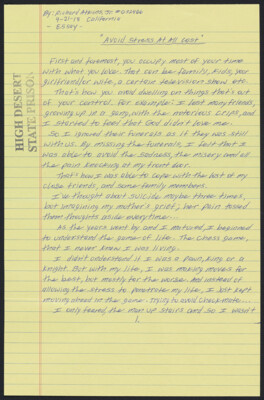 By: Richard Adams, Sr
4-21-19 California
- Essay -
"Avoid Stress At All Cost"
HIGH DESERT
STATE PRISON
First and foremost, you occupy most of your time
with what you love. That can be family, kids, your
girlfriend/or wife, a certain television show etc.
That's how you avoid dwelling on things that's out
of your control. For example: I lost many friends,
growing up in a gang, with the notorious Crips, and
I started to feel that
So I ignored their funerals as if they was still
with us. By missing the funerals, I felt that I
was able to avoid the sadness, the misery and all
the pain knocking at my front door.
That's how I was able to cope with the lost of my
close friends, and some family members.
I've thought about suicide maybe three times,
but imagining my mother's grief, her pain tossed
them thoughts aside everytime...
As the years went by and I matured, I beginned
to understand the game of life. The chess game,
that I never knew I was living.
I didn't understand if I was a pawn, king or a
knight. But with my life, I was making moves for
the best, but mostly for the worse. And instead of
allowing the stress to penetrate my life, I just kept
moving ahead in the game. Trying to avoid checkmate...
I only feared the man up stairs and so I wasn't
1